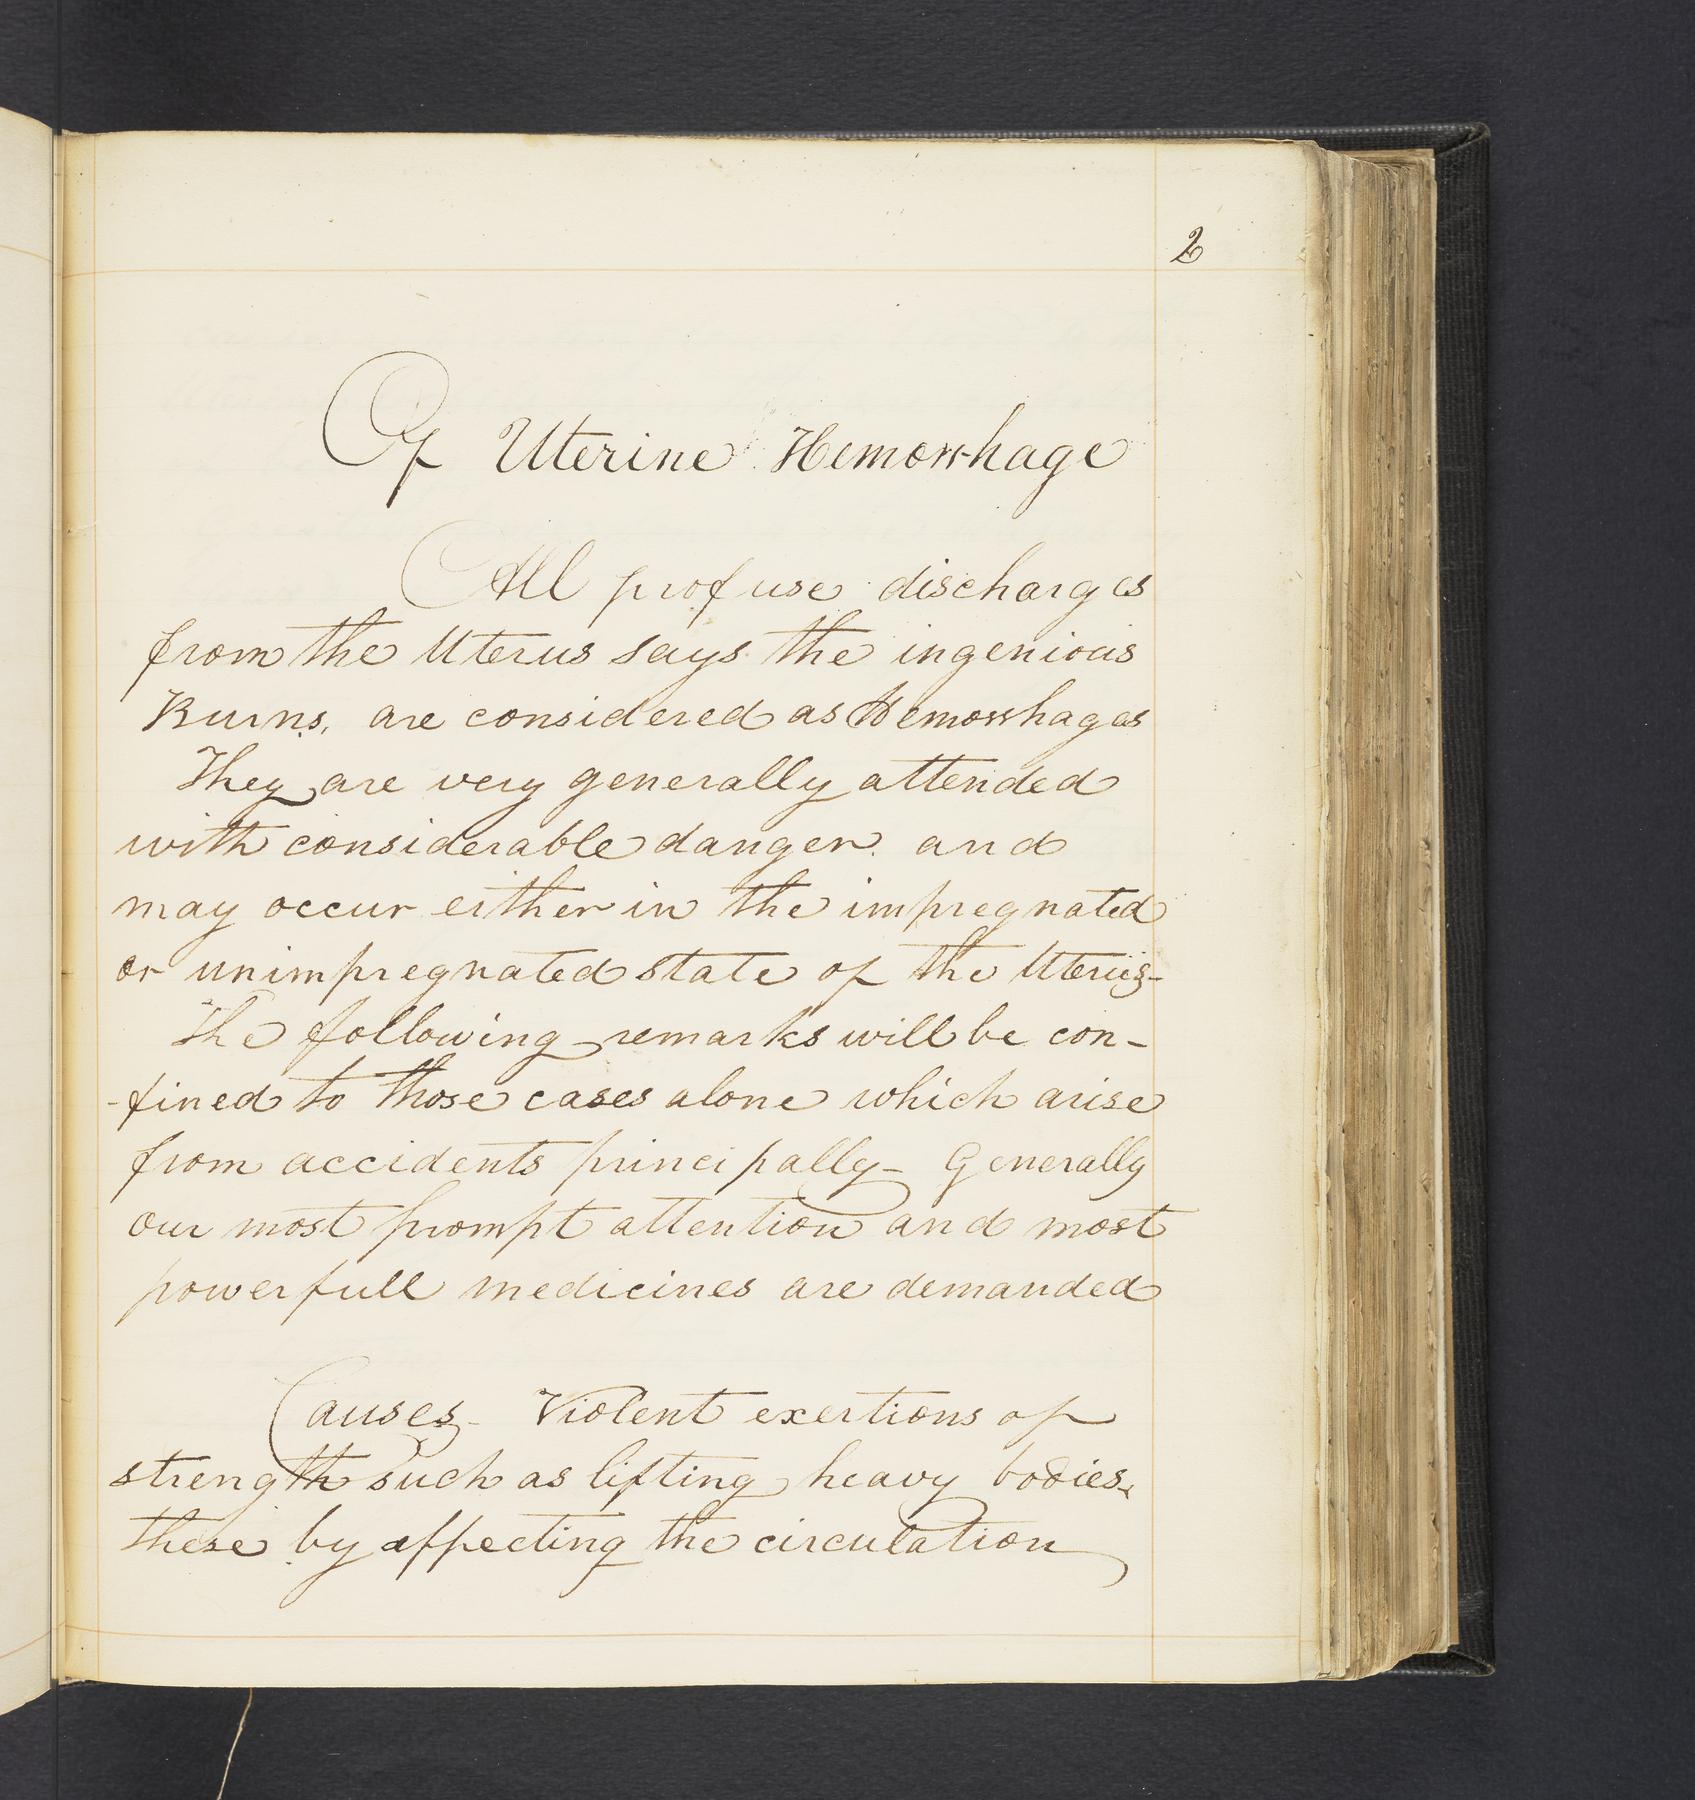 2
Of Uterine Hemorrhage
All profuse discharges
from the Uterus says the ingenious
Burns, are considered as Hemorrhages
They are very generally attended
with considerable danger. and
may occur either in the impregnated
or unimpregnated state of the Uterus-
The following remarks will be con-
-fined to those cases alone which arise
from accidents principally- Generally
our most prompt attention and most
powerfull medicines are demanded
Causes- Violent exertions of
strength such as lifting heavy bodies,
these by affecting the circulation